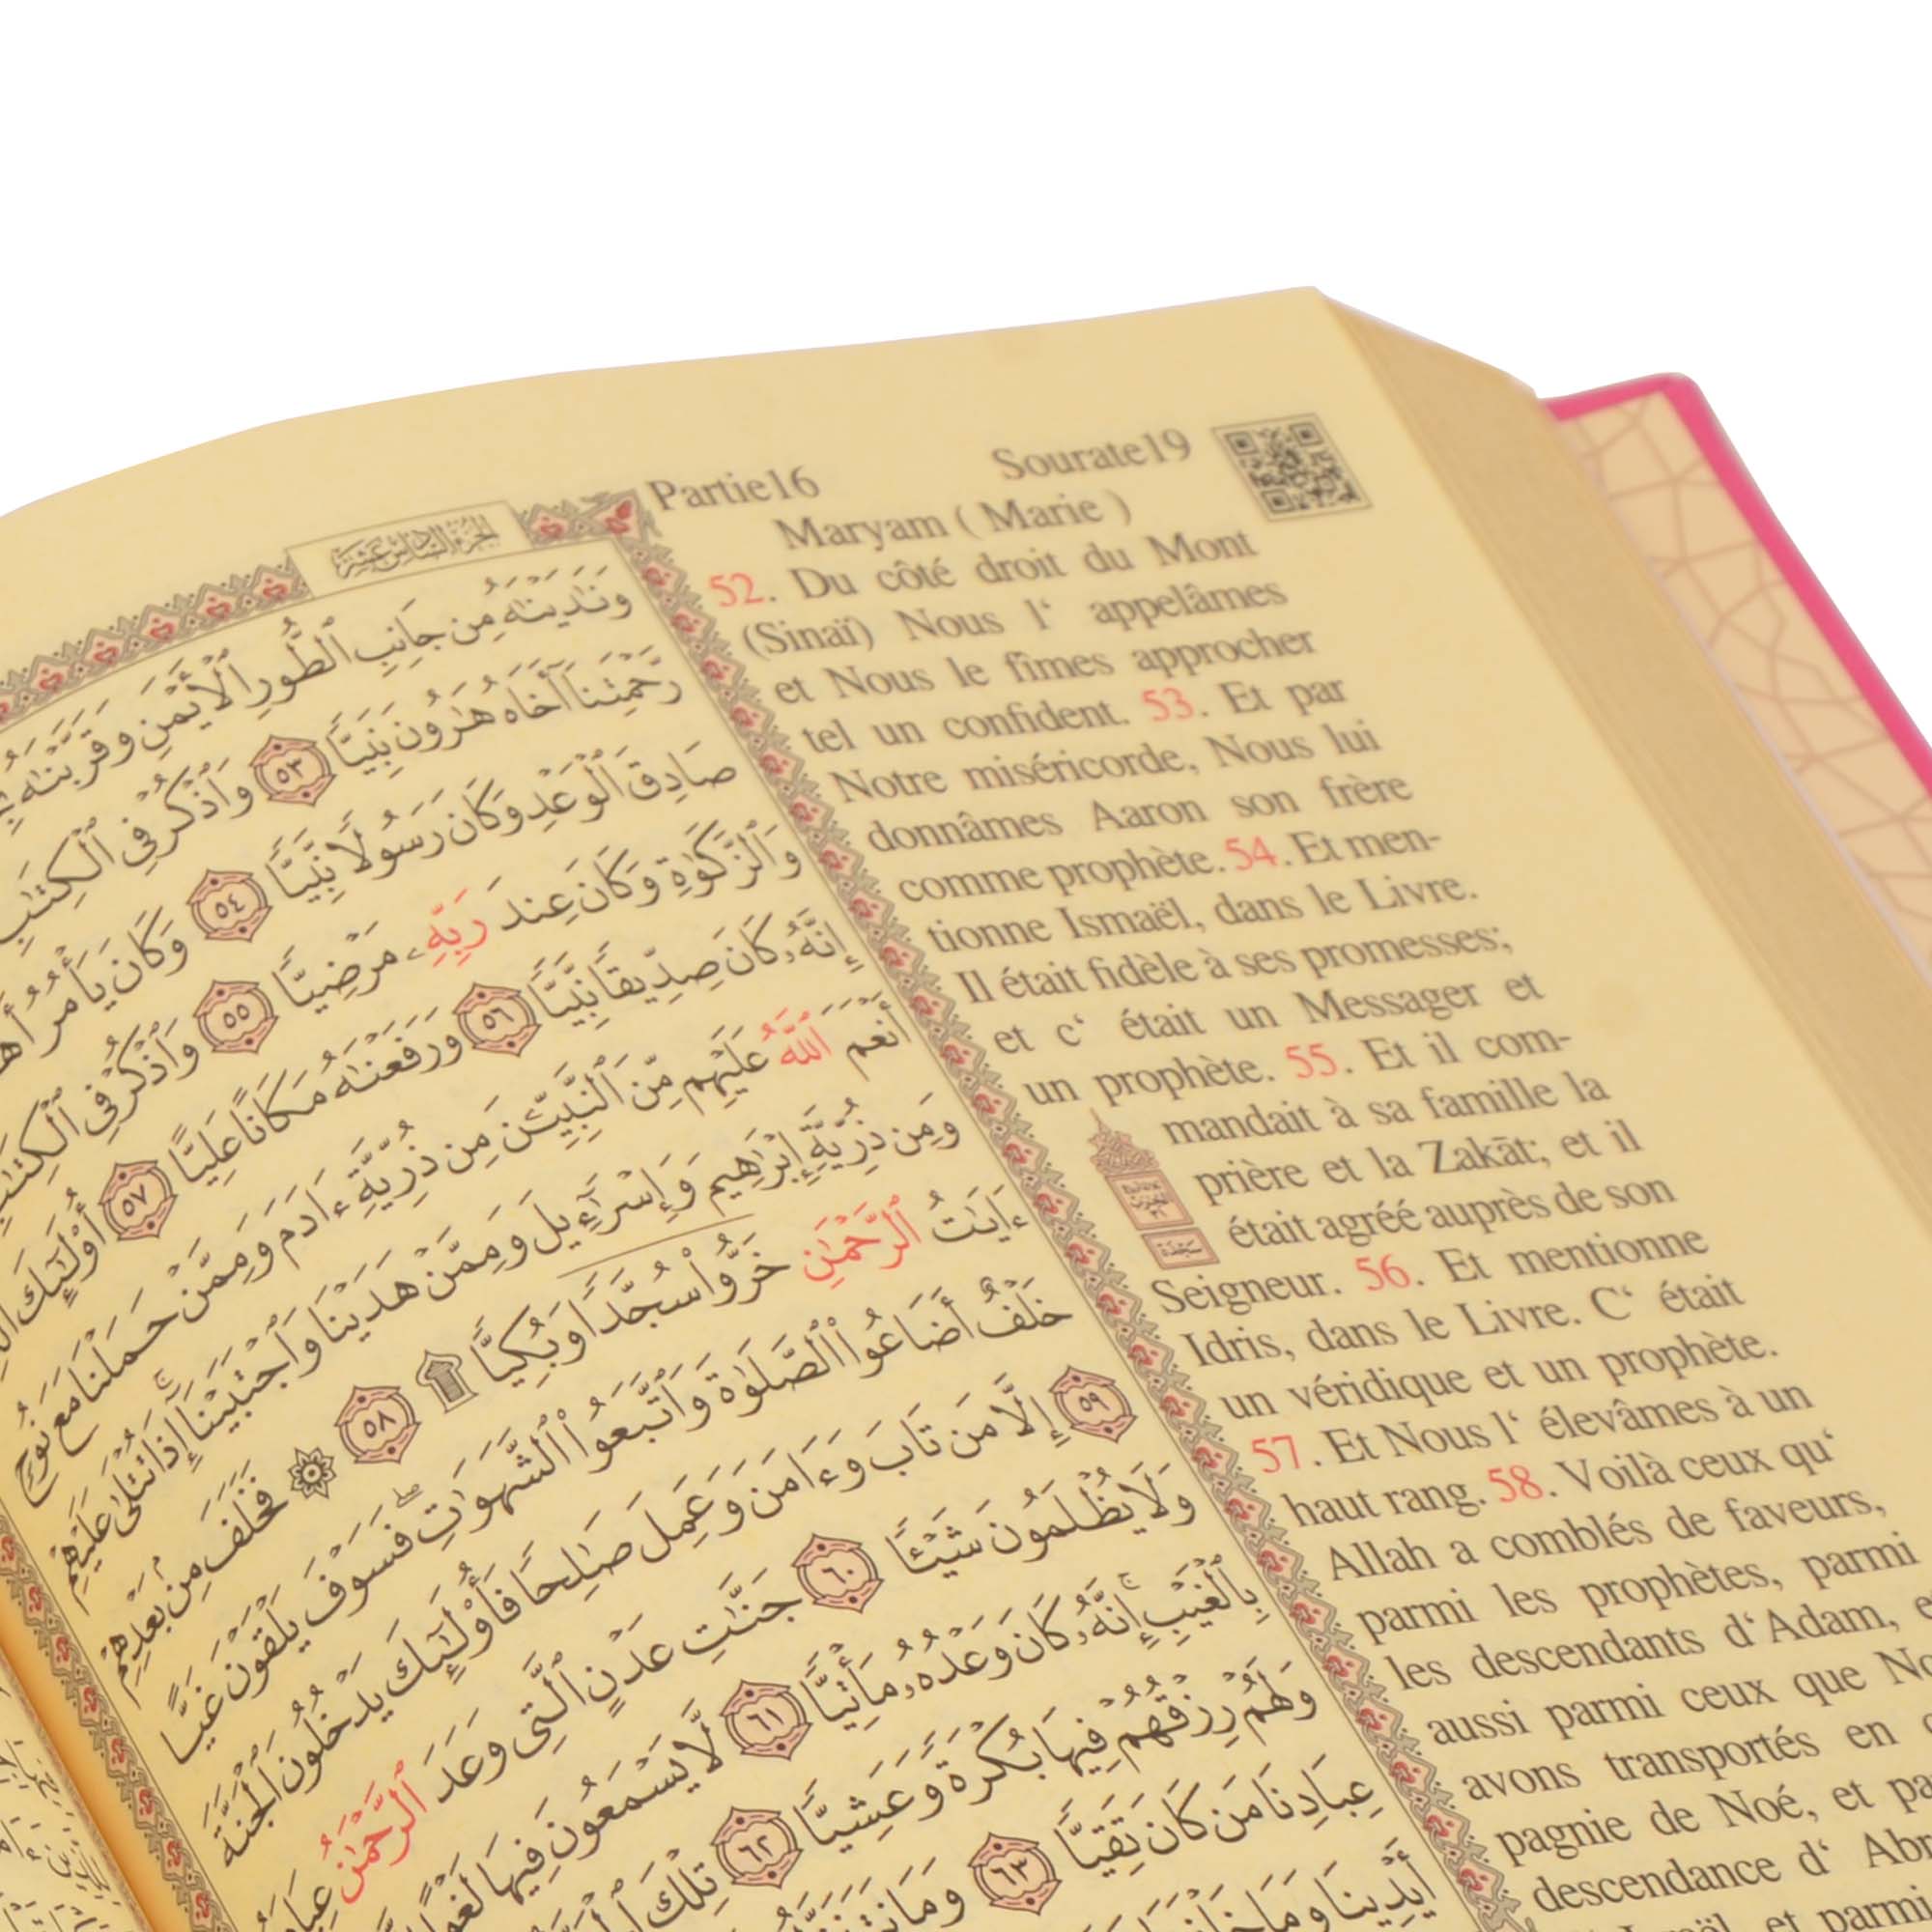 Partie16 Sourate19
Maryam ( Marie )
52. Du côté droit du Mont
(Sinaï) Nous l‘ appelâmes
et Nous le fîmes approcher
tel un confident. 53. Et par
Notre miséricorde, Nous lui
donnâmes Aaron son frère
comme prophète. 54. Et men-
tionne Ismaël, dans le Livre.
Il était fidèle à ses promesses;
et c‘ était un Messager et
un prophète. 55. Et il com-
mandait à sa famille la
prière et la Zakāt; et il
était agréé auprès de son
Seigneur. 56. Et mentionne
Idris, dans le Livre. C‘ était
un véridique et un prophète.
57. Et Nous l‘ élevâmes à un
haut rang. 58. Voilà ceux qu‘
Allah a comblés de faveurs,
parmi les prophètes, parmi
les descendants d‘Adam, e
aussi parmi ceux que No
avons transportés en
pagnie de Noé, et pa
descendance d‘ Abr
et parmi
الجزء السادس عشر
وَنَٰدَيْنَٰهُ مِن جَانِبِ ٱلطُّورِ ٱلْأَيْمَنِ وَقَرَّبْنَٰهُ
رَّحْمَتِنَآ أَخَاهُ هَٰرُونَ نَبِيًّا ٥٣ وَٱذْكُرْ فِى ٱلْكِتَٰبِ
صَادِقَ ٱلْوَعْدِ وَكَانَ رَسُولًا نَّبِيًّا ٥٤ وَكَانَ يَأْمُرُ
وَٱلزَّكَوٰةِ وَكَانَ عِندَ رَبِّهِۦ مَرْضِيًّا ٥٥ وَٱذْكُرْ فِى ٱلْكِتَٰبِ
إِنَّهُۥ كَانَ صِدِّيقًا نَّبِيًّا ٥٦ وَرَفَعْنَٰهُ مَكَانًا عَلِيًّا ٥٧ أُو۟لَٰٓئِكَ
أَنْعَمَ ٱللَّهُ عَلَيْهِم مِّنَ ٱلنَّبِيِّۦنَ مِن ذُرِّيَّةِ ءَادَمَ وَمِمَّنْ حَمَلْنَا مَعَ نُوحٍ
وَمِن ذُرِّيَّةِ إِبْرَٰهِيمَ وَإِسْرَٰٓءِيلَ وَمِمَّنْ هَدَيْنَا وَٱجْتَبَيْنَآ إِذَا تُتْلَىٰ عَلَيْهِمْ
ءَايَٰتُ ٱلرَّحْمَٰنِ خَرُّوا۟ سُجَّدًا وَبُكِيًّا ۩ ٥٨ ۞ فَخَلَفَ مِنۢ بَعْدِهِمْ
خَلْفٌ أَضَاعُوا۟ ٱلصَّلَوٰةَ وَٱتَّبَعُوا۟ ٱلشَّهَوَٰتِ فَسَوْفَ يَلْقَوْنَ غَيًّا
٥٩ إِلَّا مَن تَابَ وَءَامَنَ وَعَمِلَ صَٰلِحًا فَأُو۟لَٰٓئِكَ يَدْخُلُونَ ٱلْجَنَّةَ
وَلَا يُظْلَمُونَ شَيْـًٔا ٦٠ جَنَّٰتِ عَدْنٍ ٱلَّتِى وَعَدَ ٱلرَّحْمَٰنُ
بِٱلْغَيْبِ إِنَّهُۥ كَانَ وَعْدُهُۥ مَأْتِيًّا ٦١ لَّا يَسْمَعُونَ فِيهَا
وَلَهُمْ رِزْقُهُمْ فِيهَا بُكْرَةً وَعَشِيًّا ٦٢ تِلْكَ
عِبَادِنَا مَن كَانَ تَقِيًّا ٦٣ وَمَا
أَيْدِينَا وَمَا